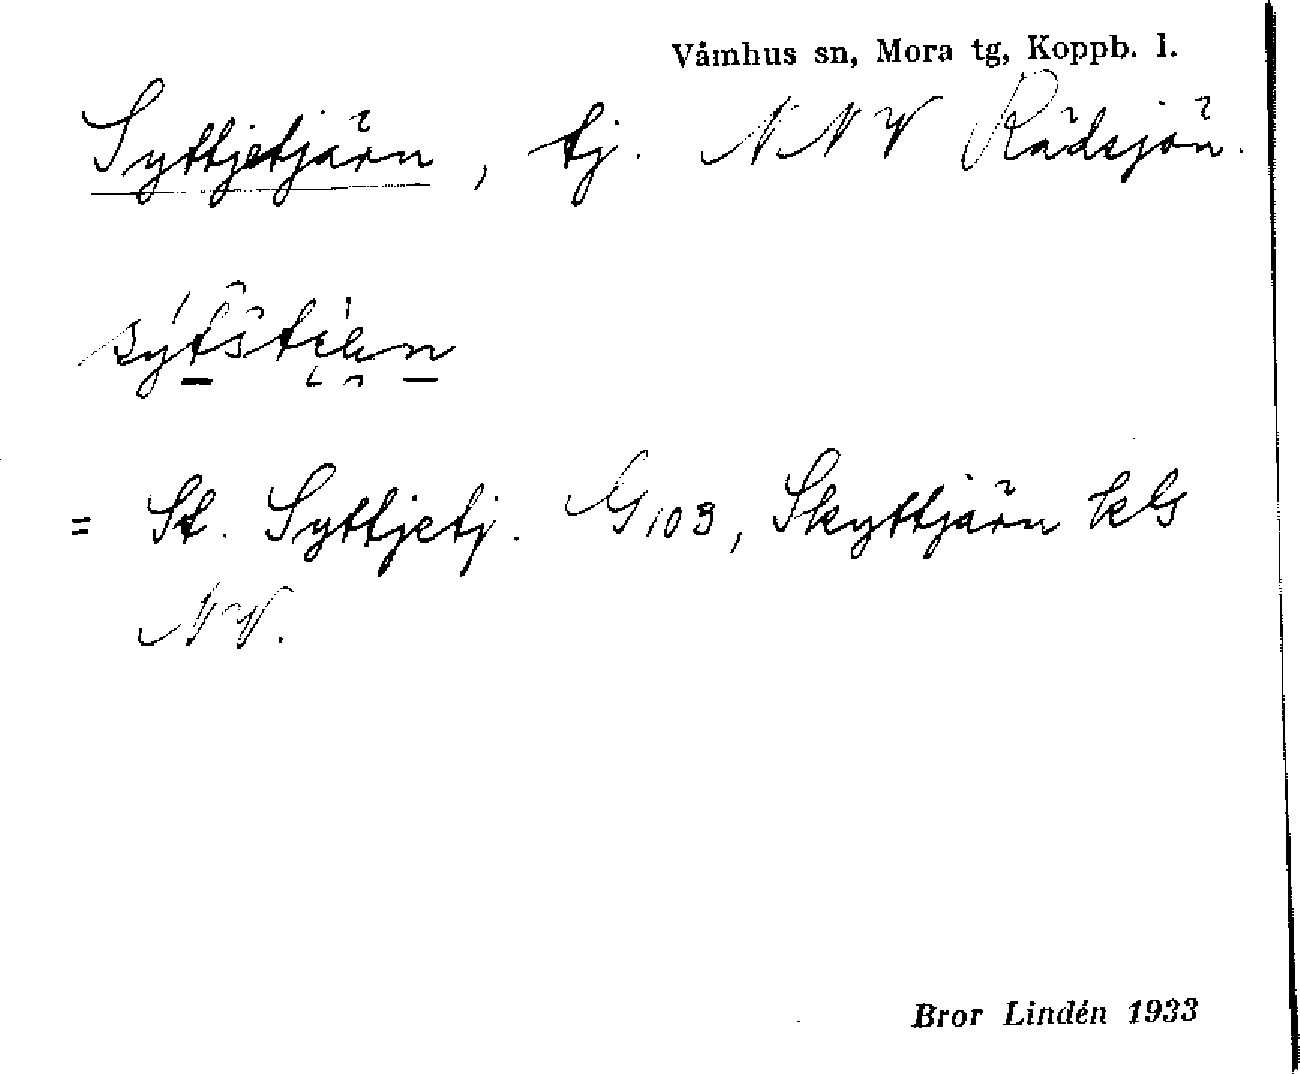 Våmhus sn, Mora tg, Koppb. l.
Syttjetjärn, tj. NNV Rädsjön.
= St. Syttjetj. G 103, Skyttjärn kls
NV.
Bror Lindén 1933